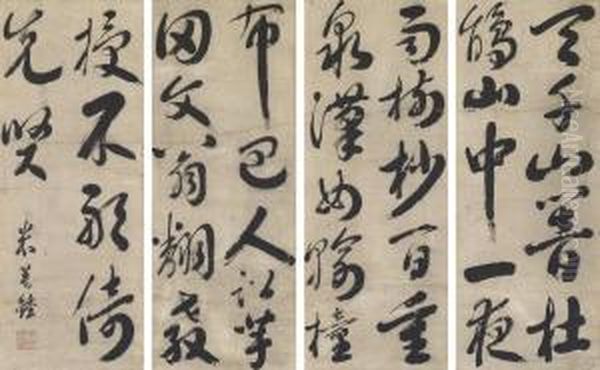 天千山響杜
鵑山中一夜
雨樹杪百重
泉漢女輸橦
布巴人訟芋
田文翁翻教
授不敢倚
先賢
米萬鍾